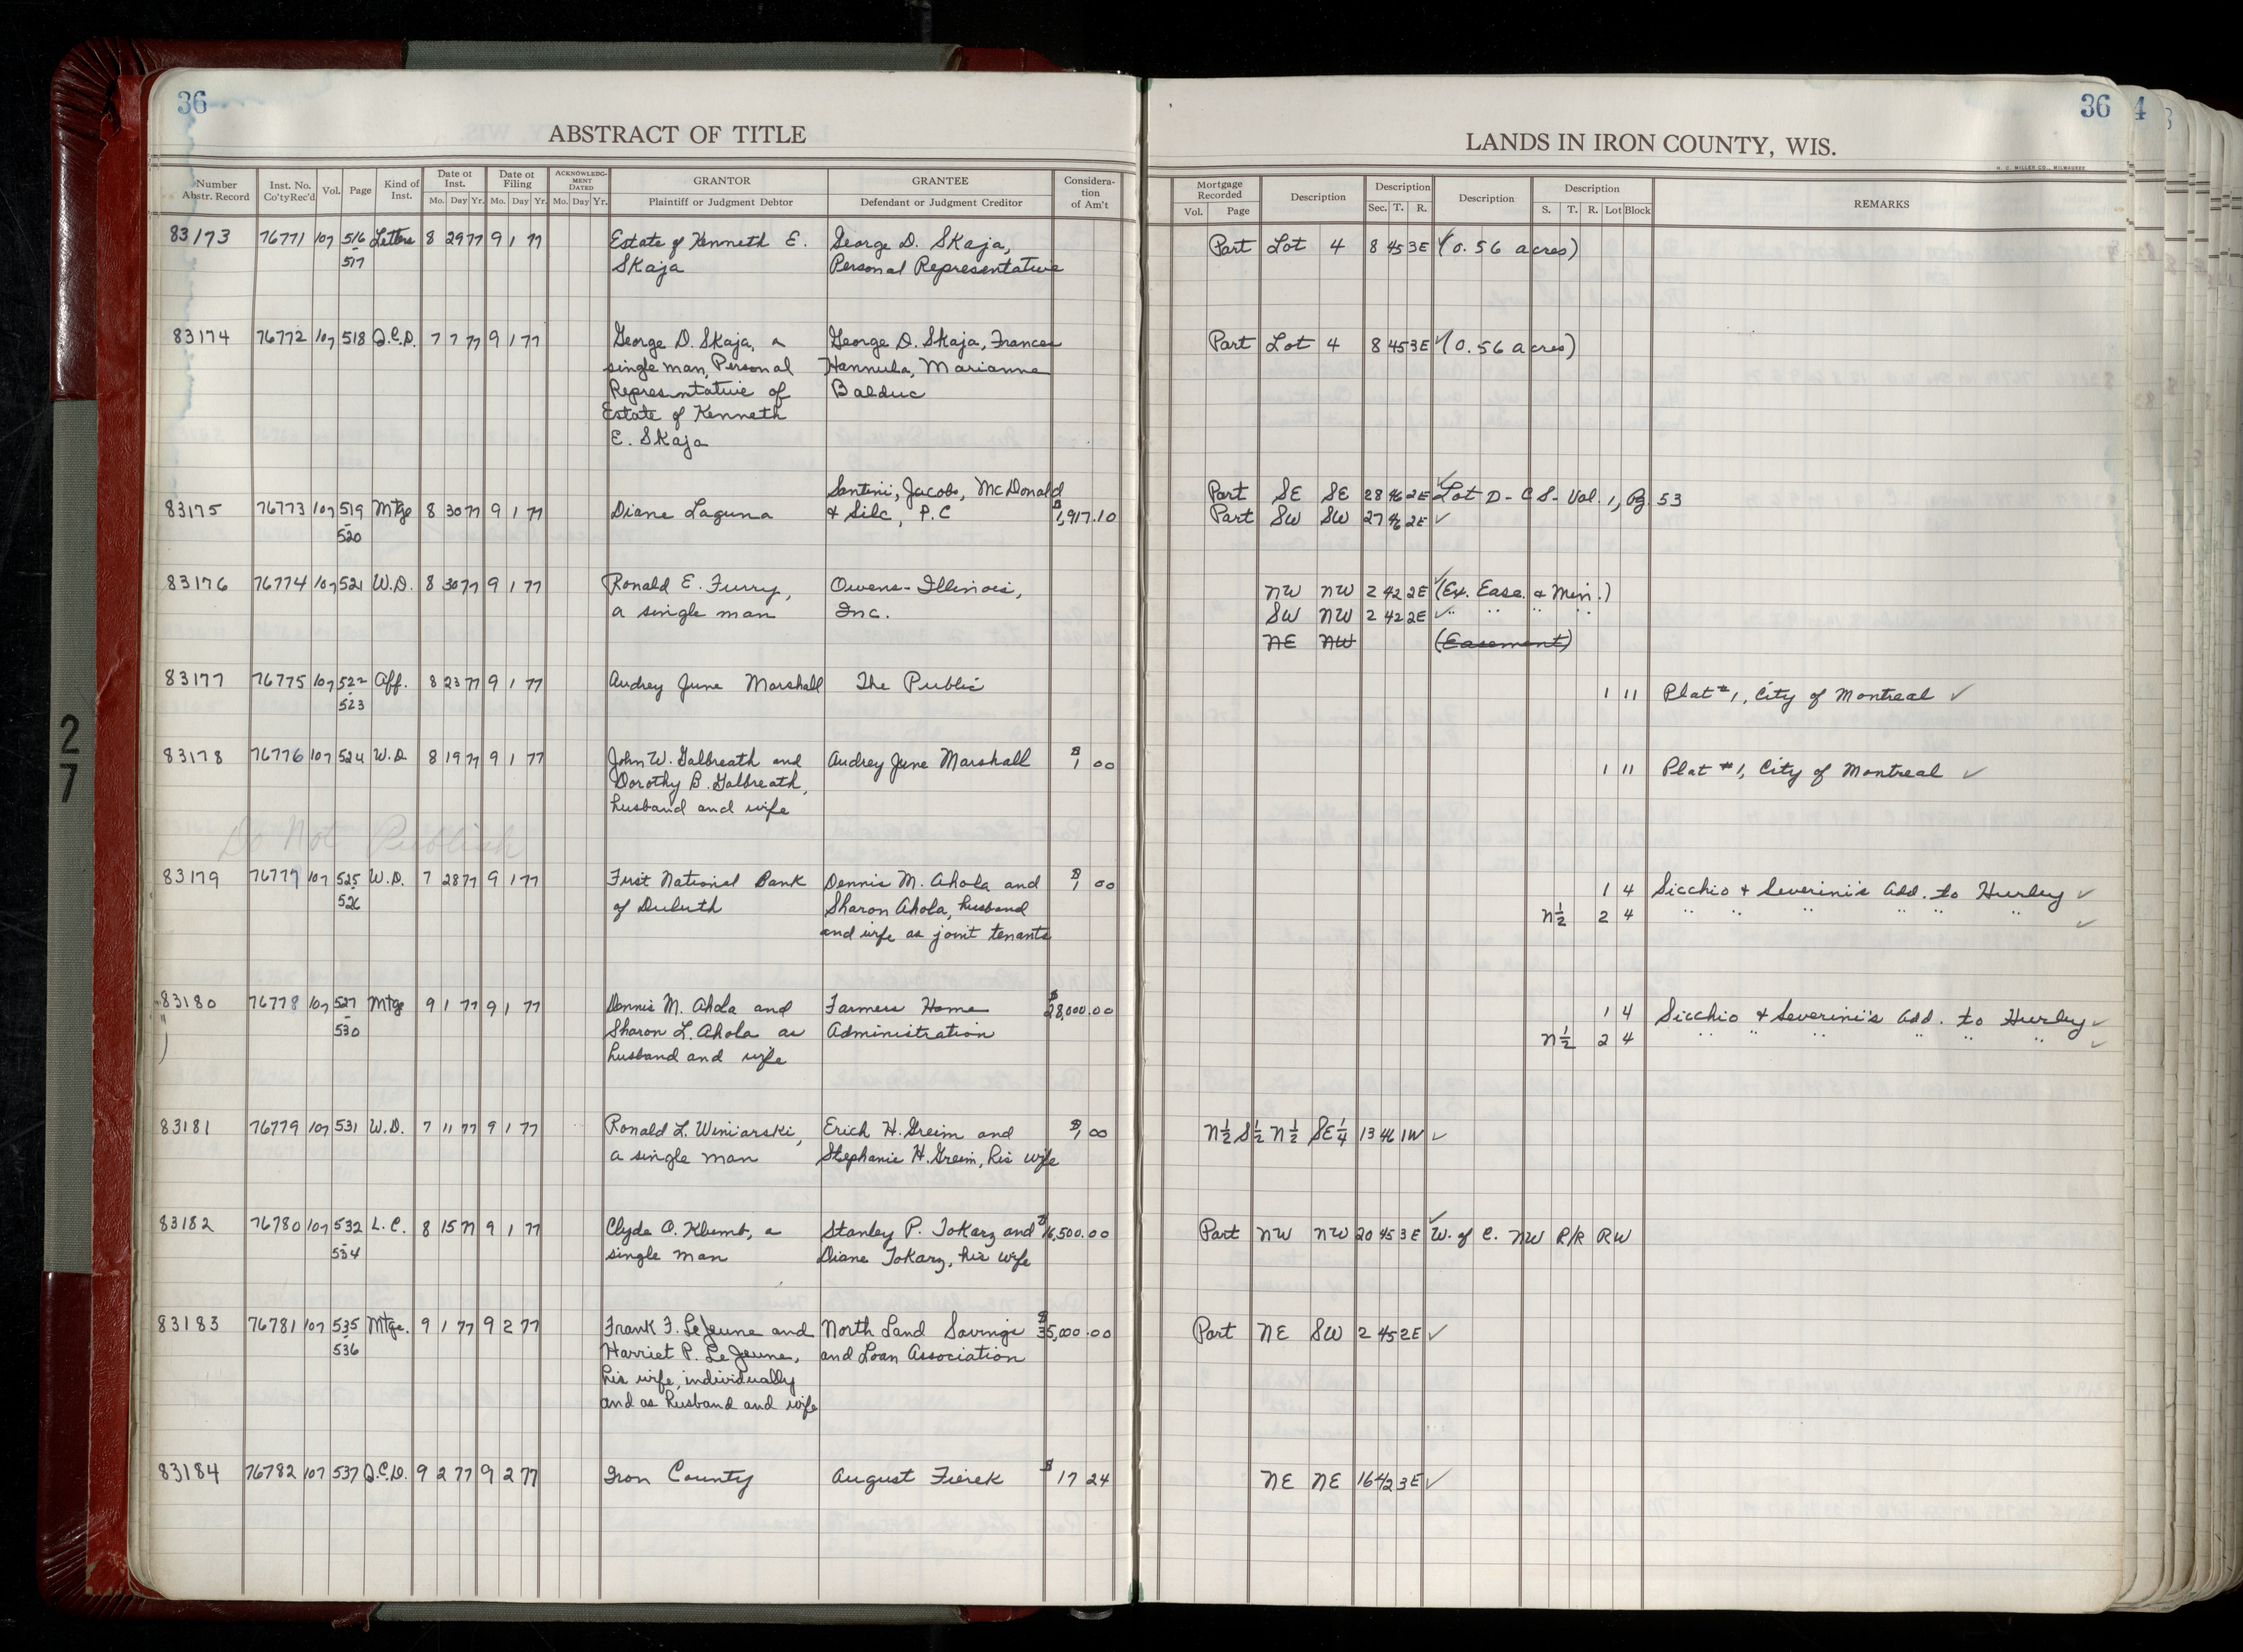 36
ABSTRACT OF TITLE
Number Abstr. Record
Inst. No. Co'ty Rec'd
Vol.
Page
Kind of Inst.
Date of Inst.
Mo. Day Yr.
Date of Filing
Mo. Day Yr.
ACKNOWLEDG-MENT DATED
Mo. Day Yr.
GRANTOR
Plaintiff or Judgment Debtor
GRANTEE
Defendant or Judgment Creditor
Considera-tion of Am't
36
LANDS IN IRON COUNTY, WIS.
H. C. MILLER CO., MILWAUKEE
Mortgage Recorded
Vol. Page
Description
Description
Sec. T. R.
Description
Description
S. T. R. Lot Block
REMARKS
83173 76771 107 516 Letters 8 29 77 9 1 77 Estate of Kenneth E. George D. Skaja, Part Lot 4 8 45 3E (0.56 acres)
- 517 Skaja Personal Representative
83174 76772 107 518 Q.C.D. 7 7 77 9 1 77 George D. Skaja, a George D. Skaja, Frances Part Lot 4 8 45 3E ✓(0.56 acres)
single man, Personal Hannula, Marianne
Representative of Balduc
Estate of Kenneth
E. Skaja
Santini, Jacobs, McDonald Part SE SE 28 46 2E ✓Lot D - C S - Vol. 1, Pg 53
83175 76773 107 519 Mtge 8 30 77 9 1 77 Diane Laguna & Silc, P.C $1,917.10 Part SW SW 27 46 2E ✓
- 520
83176 76774 107 521 W.D. 8 30 77 9 1 77 Ronald E. Furry, Owens-Illinois, NW NW 2 42 2E ✓(Ex. Ease. & Min.)
a single man Inc. SW NW 2 42 2E ✓ " " " "
NE NW (Easement)
83177 76775 107 522 Aff. 8 23 77 9 1 77 Audrey June Marshall The Public 1 11 Plat #1, City of Montreal ✓
- 523
83178 76776 107 524 W.D. 8 19 77 9 1 77 John W. Galbreath and Audrey June Marshall $1 00 1 11 Plat #1, City of Montreal ✓
Dorothy B. Galbreath,
husband and wife
Do Not Publish
83179 76777 107 525 W.D. 7 28 77 9 1 77 First National Bank Dennis M. Ahola and $1 00 1 4 Sicchio & Severini's Add. to Hurley ✓
- 526 of Duluth Sharon Ahola, husband N½ 2 4 " " " " " " ✓
and wife as joint tenants
83180 76778 107 527 Mtge 9 1 77 9 1 77 Dennis M. Ahola and Farmers Home $28,000.00 1 4 Sicchio & Severini's Add. to Hurley ✓
- 530 Sharon L. Ahola as Administration N½ 2 4 " " " " " " ✓
husband and wife
83181 76779 107 531 W.D. 7 11 77 9 1 77 Ronald L. Winiarski, Erich H. Greim and $1 00 N½ S½ N½ SE¼ 13 46 1W ✓
a single man Stephanie H. Greim, his wife
83182 76780 107 532 L.C. 8 15 77 9 1 77 Clyde O. Klumb, a Stanley P. Tokarz and $16,500.00 Part NW NW 20 45 3E ✓W. of C. NW R/R RW
- 534 single man Diane Tokarz, his wife
83183 76781 107 535 Mtge. 9 1 77 9 2 77 Frank F. LeJeune and North Land Savings $35,000.00 Part NE SW 2 45 2E ✓
- 536 Harriet P. LeJeune, and Loan Association
his wife, individually
and as husband and wife
83184 76782 107 537 Q.C.D. 9 2 77 9 2 77 Iron County August Fierek $17 24 NE NE 16 42 3E ✓
27